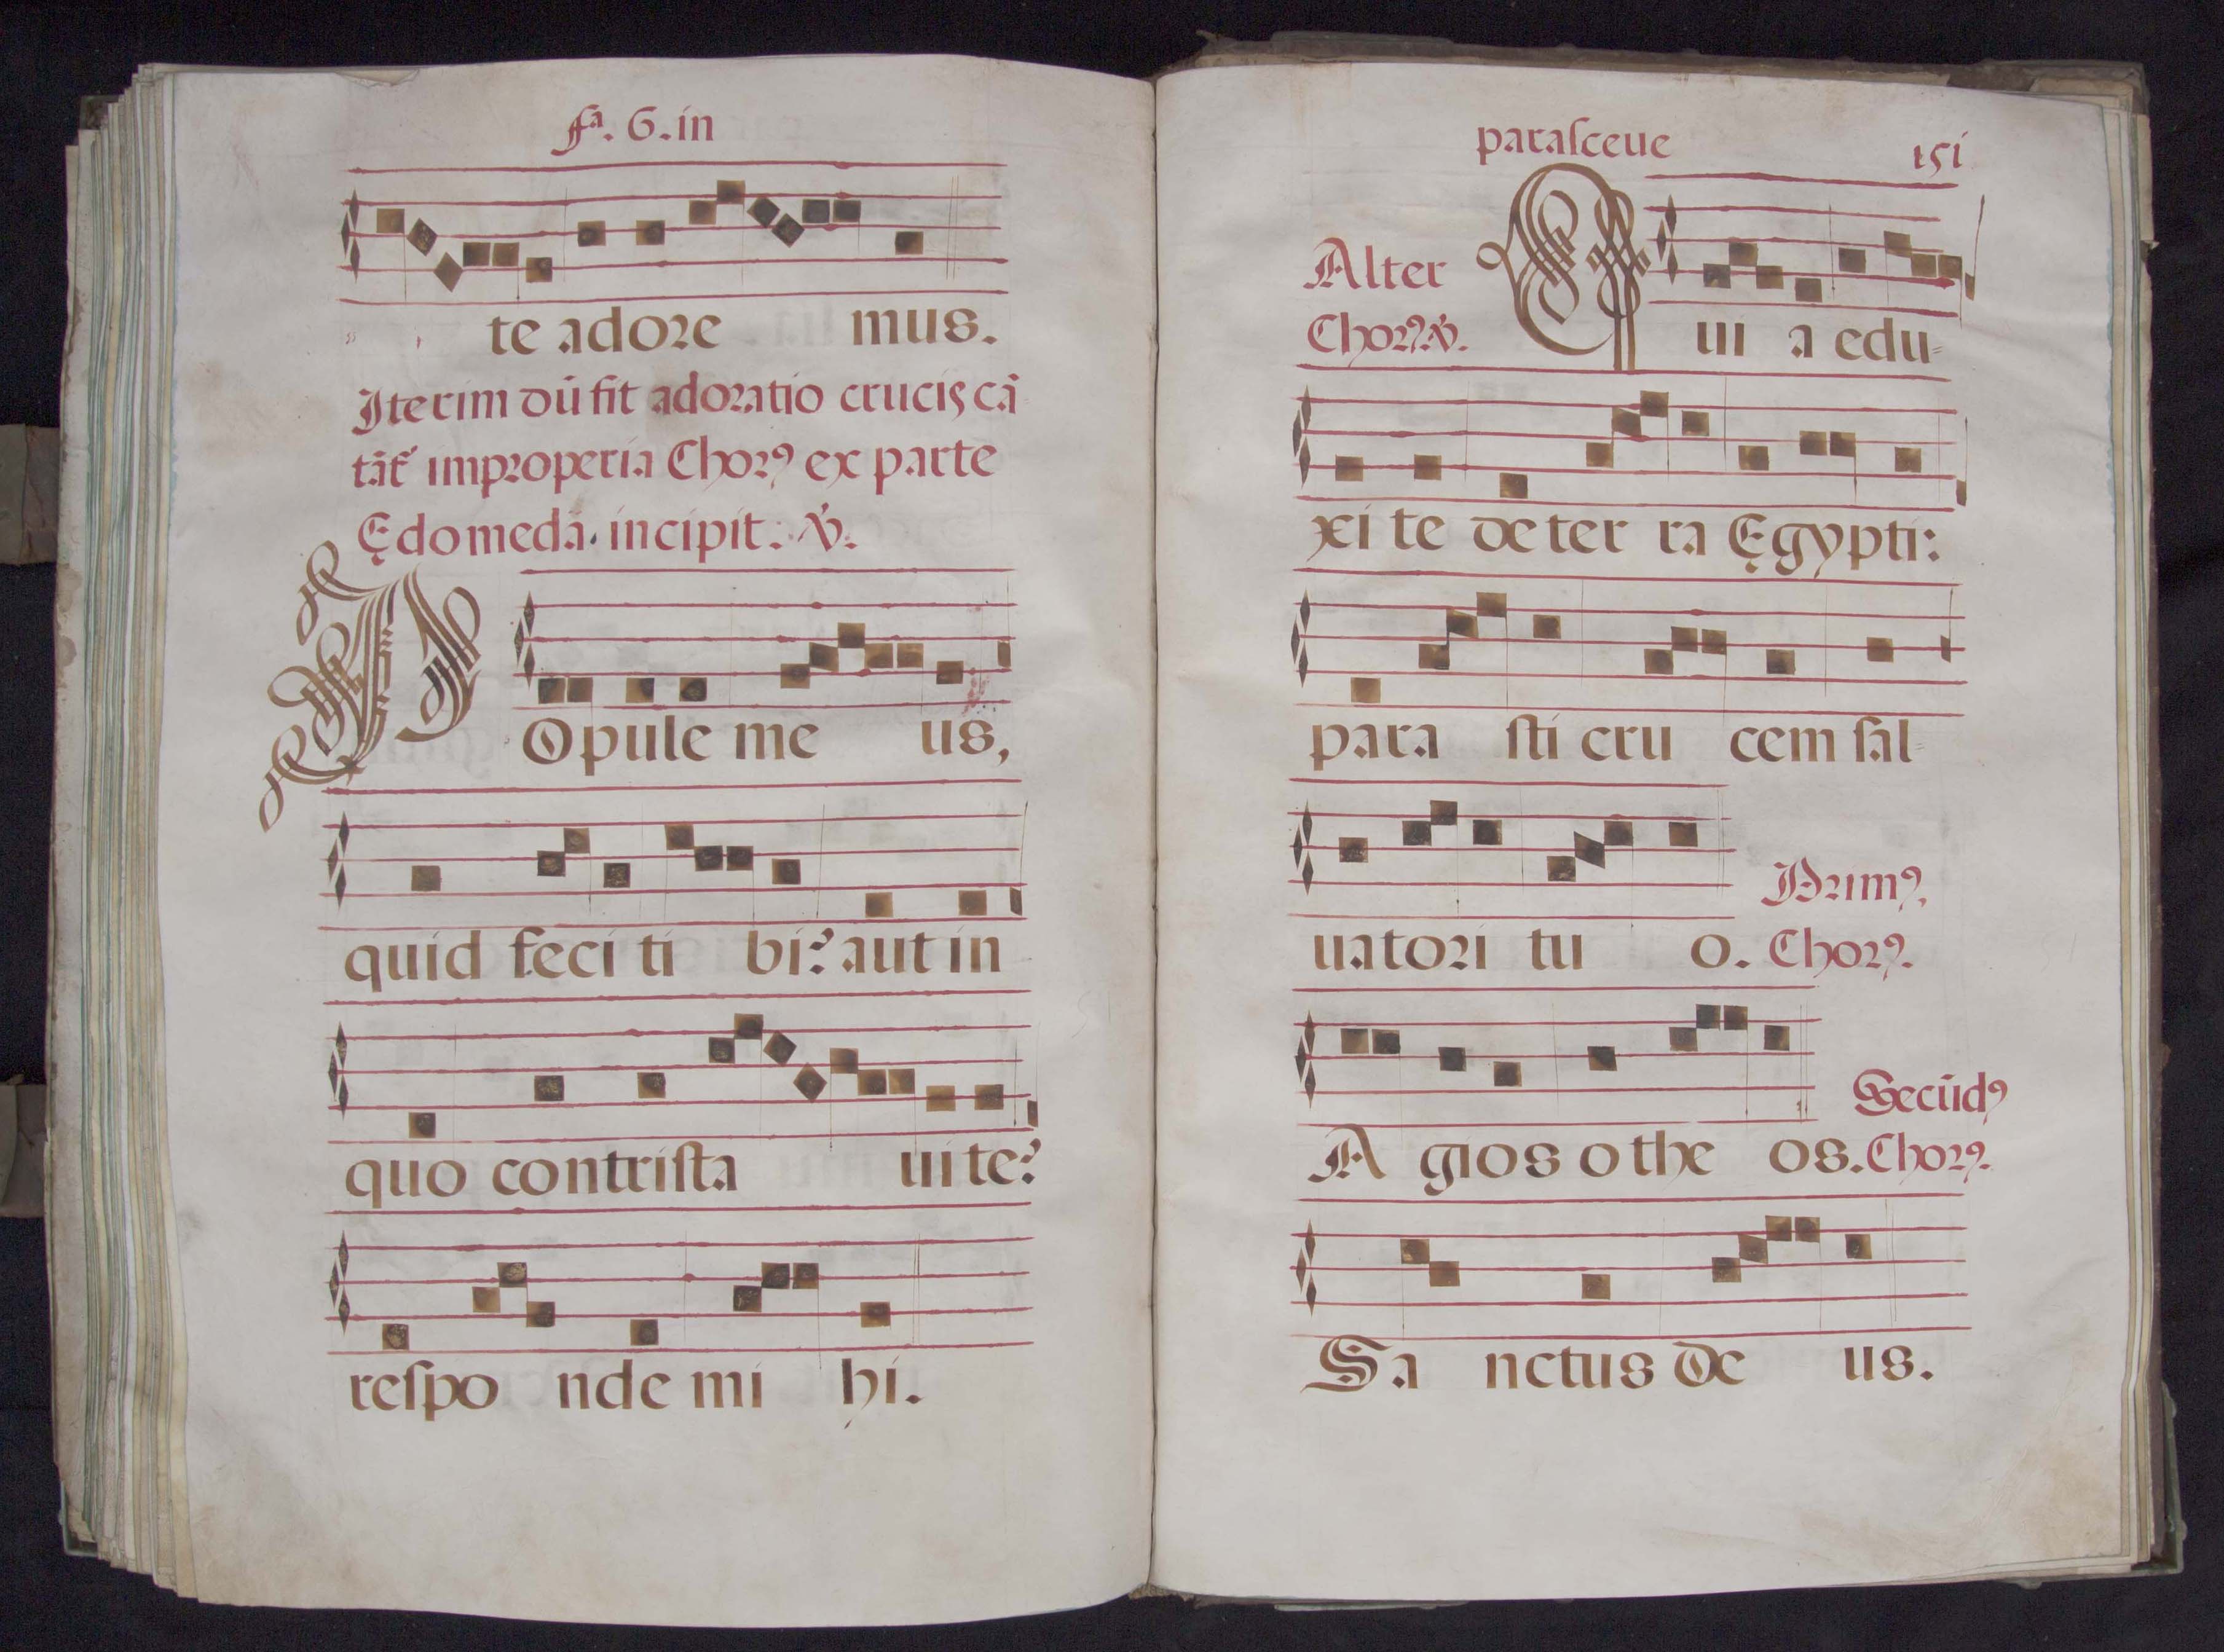 fª. 6. in
te adore mus.
Iterim dū fit adoratio crucis cā
tāt᷒ improperia Chorꝰ ex parte
Ędomedā. incipit: ℣.
P Opule me us,
quid feci ti bi? aut in
quo contrista ui te?
respo nde mi hi.
parasceue 151
Alter
Chorꝰ. ℣. Q ui a edu-
xi te de ter ra Ęgypti:
para sti cru cem sal-
Primꝰ.
uatori tu o. Chorꝰ.
Secūdꝰ
A gios o the os. Chorꝰ.
Sa nctus de us.